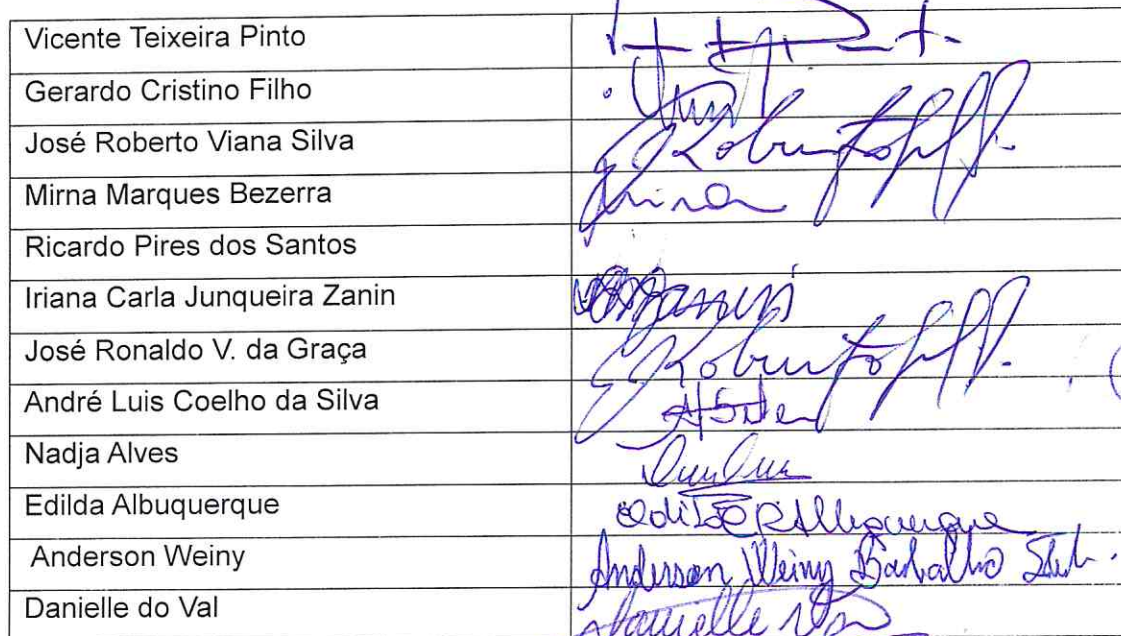 Vicente Teixeira Pinto
Gerardo Cristino Filho
José Roberto Viana Silva
Mirna Marques Bezerra
Mirna
Ricardo Pires dos Santos
Iriana Carla Junqueira Zanin
José Ronaldo V. da Graça
André Luis Coelho da Silva
Nadja Alves
Edilda Albuquerque
Albuquerque
Anderson Weiny
Anderson Weiny Barbalho
Danielle do Val
Danielle Val